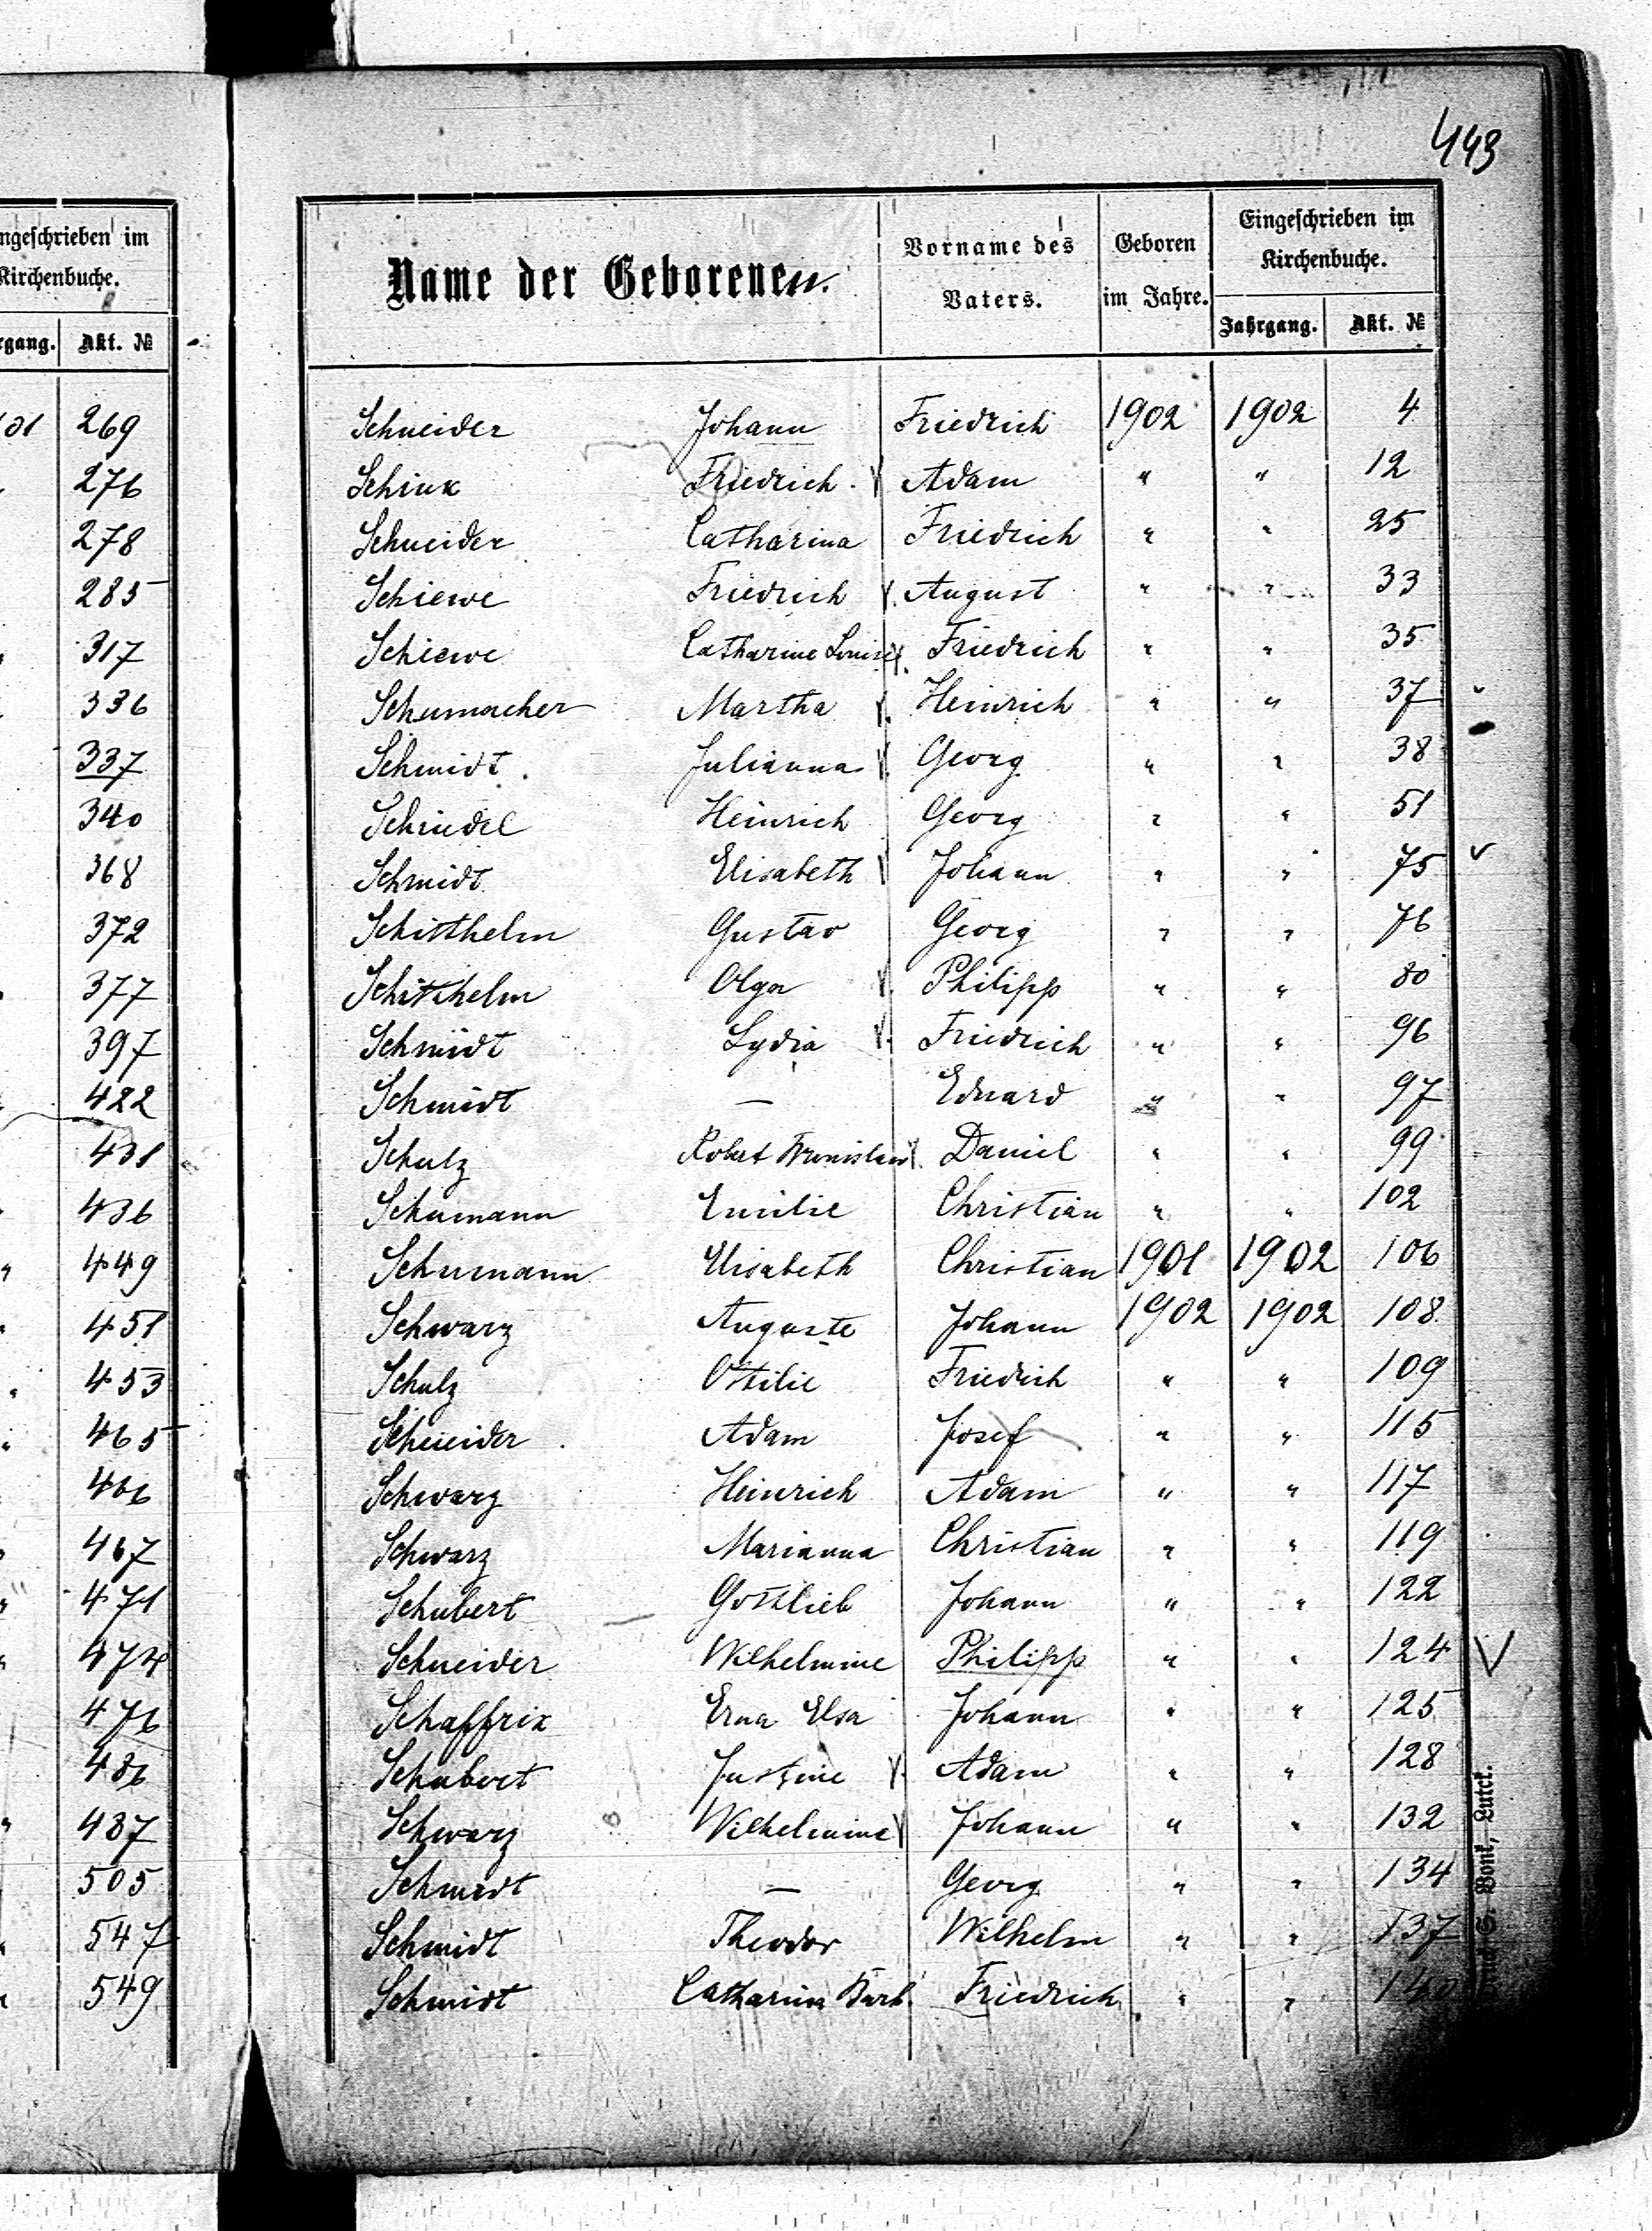 443
ngeschrieben im
Kirchenbuche.
rgang. Akt. №
101 269
276
278
285
317
336
337
340
368
372
377
397
422
431
436
" 449
" 451
" 453
" 465
466
467
" 471
" 474
476
486
" 487
505
547
549
Name der Geborenen. Vorname des Vaters. Geboren im Jahre. Eingeschrieben im Kirchenbuche.
Jahrgang. Akt. №
Schneider Johann Friedrich 1902 1902 4
Schink Friedrich Adam " " 12
Schneider Catharina Friedrich " " 25
Schiewe Friedrich August " " 33
Schiewe Catharine Louise Friedrich " " 35
Schumacher Martha Heinrich " " 37
Schmidt Julianna Georg " " 38
Schriedel Heinrich Georg " " 51
Schmidt Elisabeth Johann " " 75
Schitthelm Gustav Georg " " 76
Schitthelm Olga Philipp " " 80
Schmidt Lydia Friedrich " " 96
Schmidt — Eduard " " 97
Schulz Robert Bronislaw Daniel " " 99
Schumann Emilie Christian " " 102
Schumann Elisabeth Christian 1901 1902 106
Schwarz Auguste Johann 1902 1902 108
Schulz Ottilie Friedrich " " 109
Schneider Adam Josef " " 115
Schwarz Heinrich Adam " " 117
Schwarz Marianna Christian " " 119
Schubert Gottlieb Johann " " 122
Schneider Wilhelmine Philipp " " 124
Schaffrik Erna Elsa Johann " " 125
Schubert Justine Adam " " 128
Schwarz Wilhelmine Johann " " 132
Schmidt — Georg " " 134
Schmidt Theodor Wilhelm " " 137
Schmidt Catharina Barb. Friedrich " " 140
S. Bonk, Lutck.